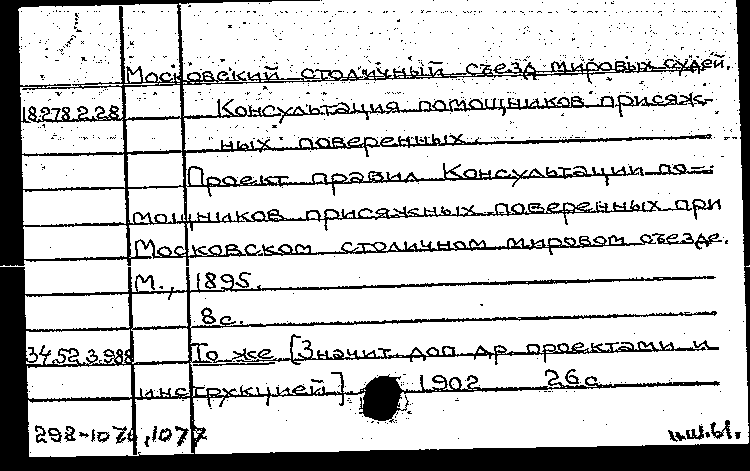 Московский столичный съезд мировых судей.
18.278.2.28 Консультация помощников присяж-
ных поверенных.
Проект правил Консультации по-
мощников присяжных поверенных при
Московском столичном мировом съезде.
М., 1895.
8с.
34.52.3.988 То же [Значит. доп. др. проектами и
инструкцией] 1902 26с
298-1076,1077